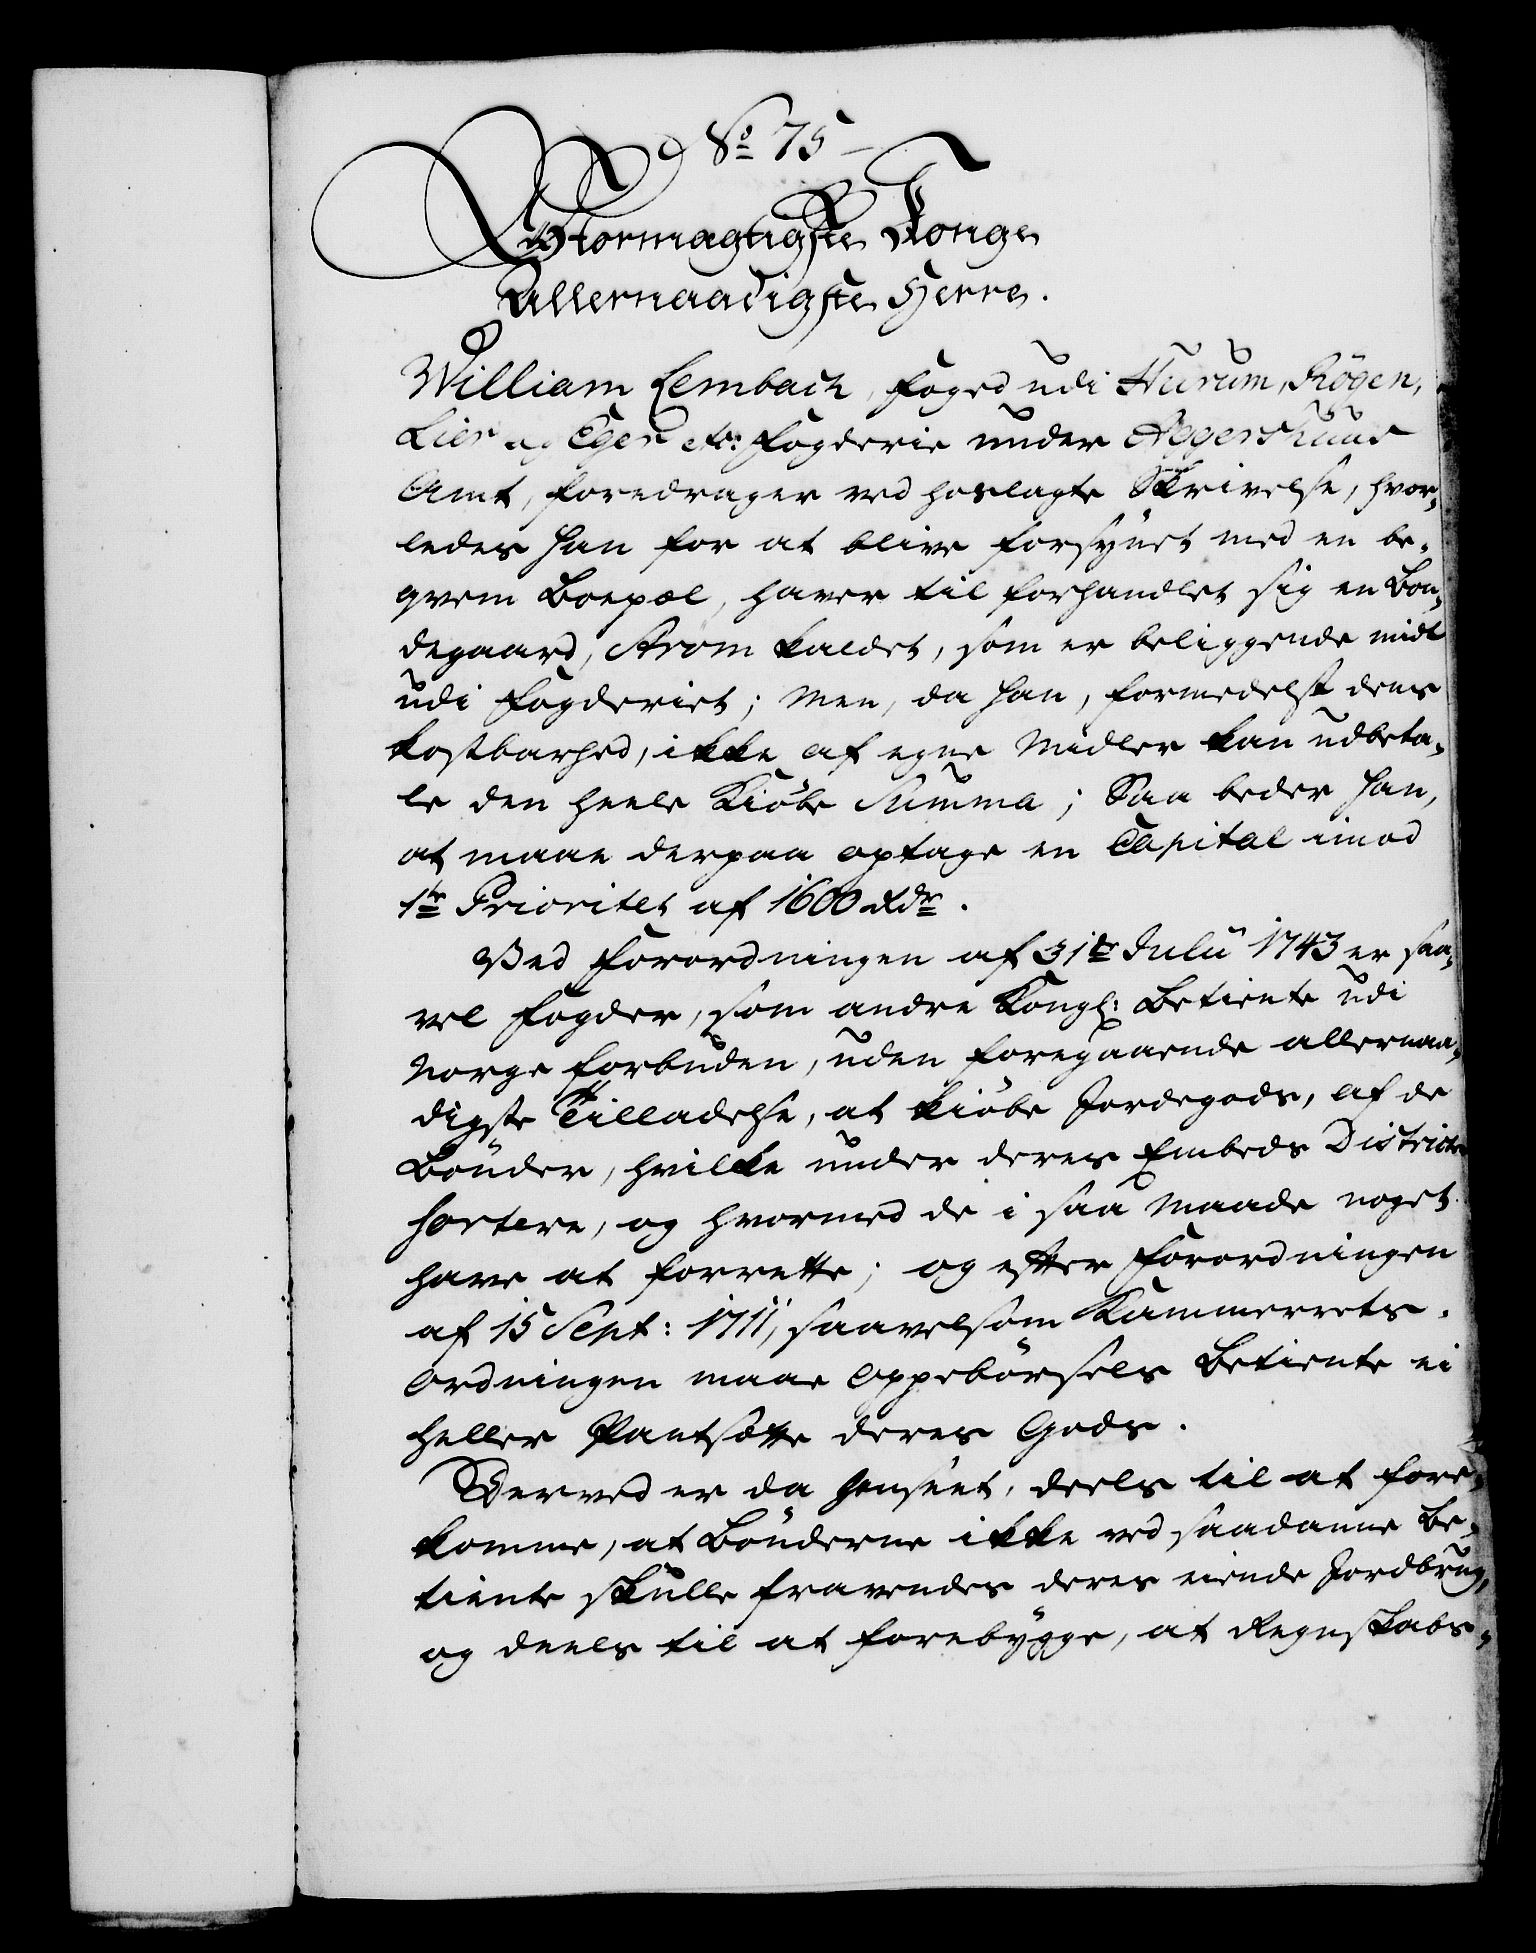 No 75
Stormægtigste Konge
Allernaadigste Herre.
William Lembach, foged udi Hurum, Rögen,
Lier og Eger etc: fogderie under Aggershuus
Amt, foredrager ved hoslagte Skrivelse, hvor-
ledes han for at blive forsynet med en be-
qvem Boepæl, haver til forhandlet sig en Bon-
degaard, Strøm kaldet, som er beliggende midt
udi fogderiet; Men, da han, formedelst dens
kostbarhed, ikke af egne Midler kan udbeta-
le den heele Kiøbe Summa; Saa beder han,
at maae derpaa optage en Capital imod
1te Prioritet af 1600 Rdr.
Ved forordningen af 31te Julii 1743 er saa-
vel fogder, som andre Kongl: Betiente udi
Norge forbuden, uden foregaaende allernaa-
digste Tilladelse, at kiøbe Jordegods, af de
Bönder, hvilke under deres Embeds District
sortere, og hvormed de i saa Maade noget
have at forrette; og efter forordningen
af 15 Sept: 1711, saavelsom Kammerrets-
Ordningen maae Oppebörsels Betiente ei
heller Pantsætte deres Gods.
Derved er da henseet, deels til at fore-
komme, at Bönderne ikke ved saadanne Be-
tiente skulle fravendes deres eiende Jordbrug,
og deels til at forebygge, at Regnskabs-